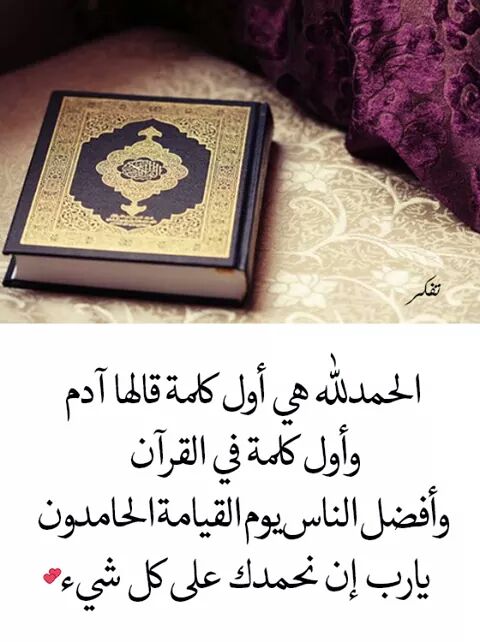 تفكر
الحمدلله هي أول كلمة قالها آدم
وأول كلمة في القرآن
وأفضل الناس يوم القيامة الحامدون
يارب إن نحمدك على كل شيء💕